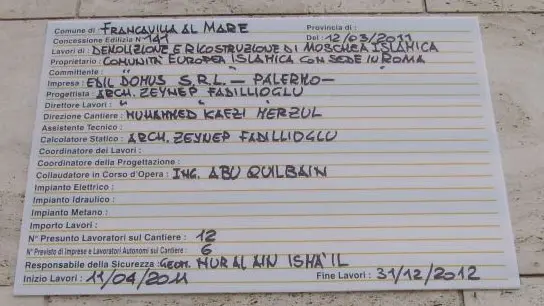 Comune di FRANCAVILLA AL MARE Provincia di :
Concessione Edilizia N° 141 Del : 12/03/2011
Lavori di : DEMOLIZIONE E RICOSTRUZIONE DI MOSCHEA ISLAMICA
Proprietario : COMUNITÀ EUROPEA ISLAMICA CON SEDE IN ROMA
Committente : " " "
Impresa : EDIL DOMUS S.R.L. — PALERMO —
Progettista : ARCH. ZEYNEP FADILLIOGLU
Direttore Lavori : " " "
Direzione Cantiere : MUHAMMED KAEZI MERZUL
Assistente Tecnico :
Calcolatore Statico : ARCH. ZEYNEP FADILLIOGLU
Coordinatore dei Lavori :
Coordinatore della Progettazione :
Collaudatore in Corso d'Opera : ING. ABU QUILBAIN
Impianto Elettrico :
Impianto Idraulico :
Impianto Metano :
Importo Lavori :
N° Presunto Lavoratori sul Cantiere : 12
N° Previsto di Imprese e Lavoratori Autonomi sul Cantiere : 6
Responsabile della Sicurezza : GEOM. NUR AL AIN ISHA'IL
Inizio Lavori : 11/04/2011 Fine Lavori : 31/12/2012